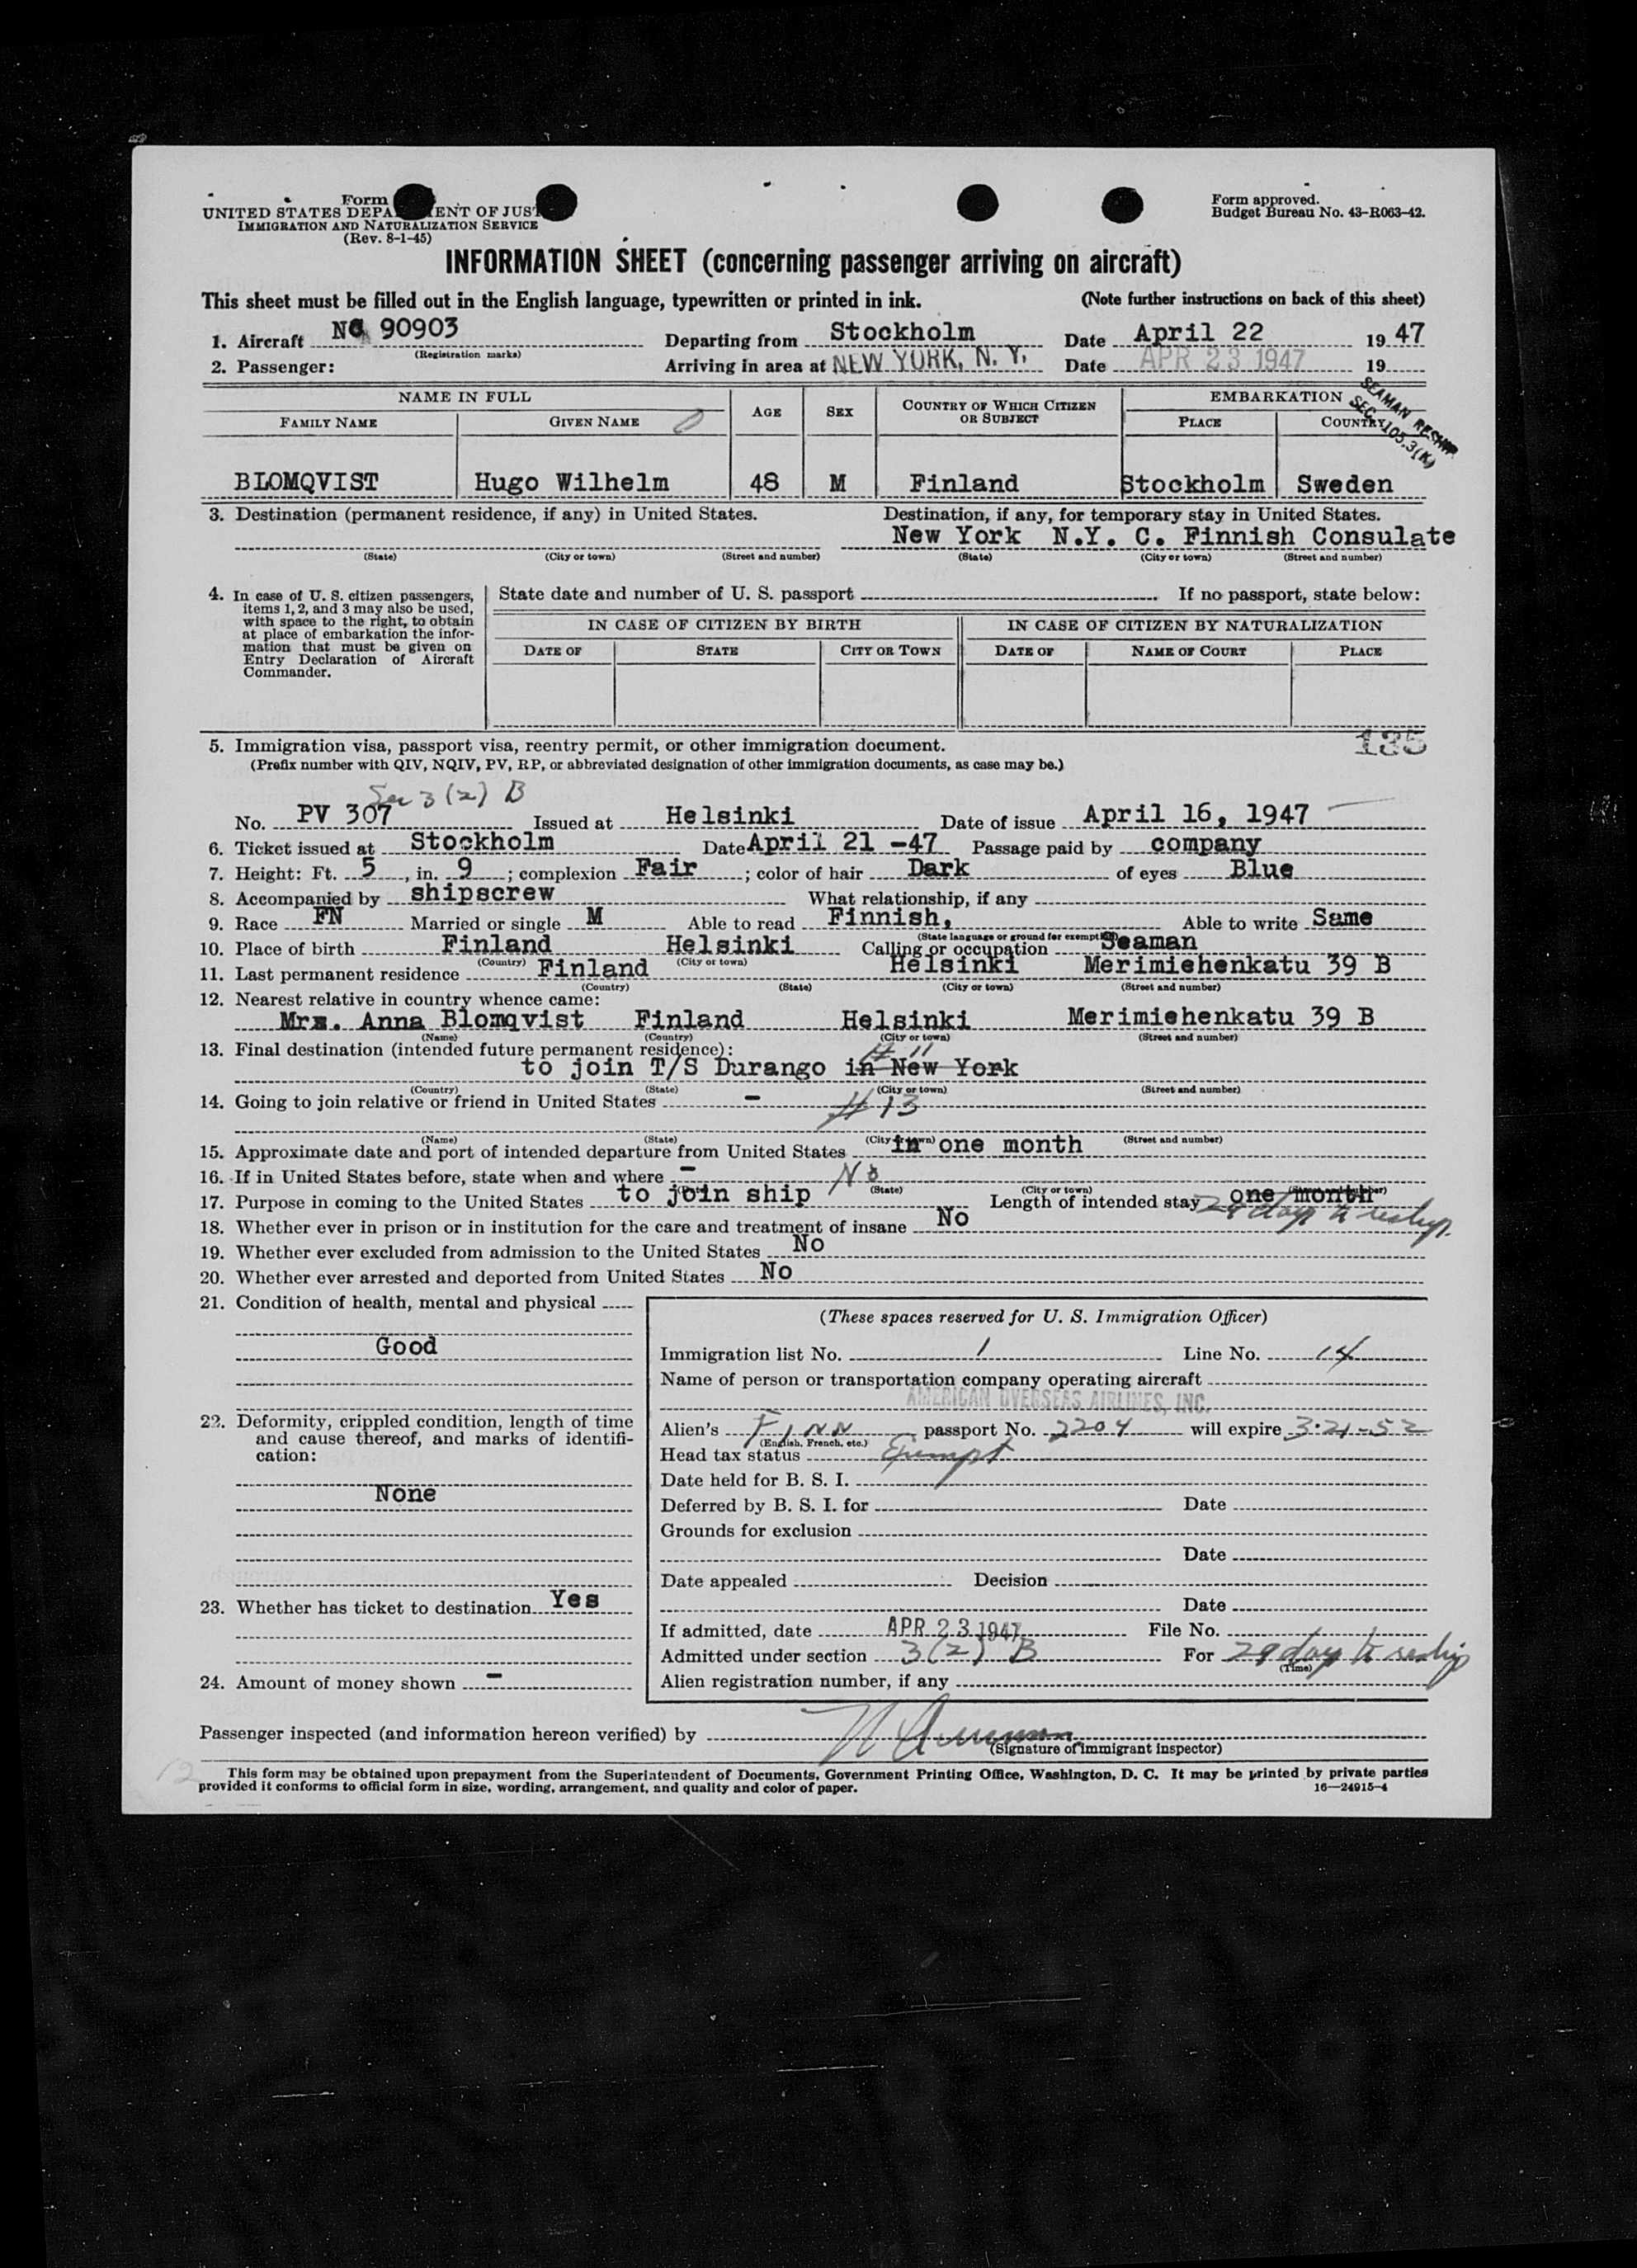 Form
UNITED STATES DEPA ENT OF JUST
IMMIGRATION AND NATURALIZATION SERVICE
(Rev. 8-1-45)
Form approved.
Budget Bureau No. 43-R063-42.
INFORMATION SHEET (concerning passenger arriving on aircraft)
This sheet must be filled out in the English language, typewritten or printed in ink. (Note further instructions on back of this sheet)
1. Aircraft NC 90903 Departing from Stockholm Date April 22 19 47
(Registration marks)
2. Passenger: Arriving in area at NEW YORK, N. Y. Date APR 23 1947 19
NAME IN FULL AGE SEX COUNTRY OF WHICH CITIZEN OR SUBJECT EMBARKATION
FAMILY NAME GIVEN NAME PLACE COUNTRY
SEAMAN RESHIP
SEC. 105.3(K)
BLOMQVIST Hugo Wilhelm 48 M Finland Stockholm Sweden
3. Destination (permanent residence, if any) in United States. Destination, if any, for temporary stay in United States.
New York N.Y. C. Finnish Consulate
(State) (City or town) (Street and number) (State) (City or town) (Street and number)
4. In case of U. S. citizen passengers, items 1, 2, and 3 may also be used, with space to the right, to obtain at place of embarkation the information that must be given on Entry Declaration of Aircraft Commander.
State date and number of U. S. passport If no passport, state below:
IN CASE OF CITIZEN BY BIRTH IN CASE OF CITIZEN BY NATURALIZATION
DATE OF STATE CITY OR TOWN DATE OF NAME OF COURT PLACE
135
5. Immigration visa, passport visa, reentry permit, or other immigration document.
(Prefix number with QIV, NQIV, PV, RP, or abbreviated designation of other immigration documents, as case may be.)
Sec 3 (2) B
No. PV 307 Issued at Helsinki Date of issue April 16, 1947
6. Ticket issued at Stockholm Date April 21 -47 Passage paid by company
7. Height: Ft. 5, in. 9; complexion Fair; color of hair Dark of eyes Blue
8. Accompanied by shipscrew What relationship, if any
9. Race FN Married or single M Able to read Finnish, Able to write Same
(State language or ground for exemption)
10. Place of birth Finland Helsinki Calling or occupation Seaman
(Country) (City or town)
11. Last permanent residence Finland Helsinki Merimiehenkatu 39 B
(Country) (State) (City or town) (Street and number)
12. Nearest relative in country whence came:
Mrs. Anna Blomqvist Finland Helsinki Merimiehenkatu 39 B
(Name) (Country) (City or town) (Street and number)
13. Final destination (intended future permanent residence):
to join T/S Durango in New York
(Country) (State) (City or town) (Street and number)
14. Going to join relative or friend in United States - # 13
(Name) (State) (City or town) (Street and number)
15. Approximate date and port of intended departure from United States in one month
16. If in United States before, state when and where - No
(State) (City or town) (Street and number)
17. Purpose in coming to the United States to join ship Length of intended stay one month
29 days to reship.
18. Whether ever in prison or in institution for the care and treatment of insane No
19. Whether ever excluded from admission to the United States No
20. Whether ever arrested and deported from United States No
21. Condition of health, mental and physical
Good
22. Deformity, crippled condition, length of time and cause thereof, and marks of identification:
None
23. Whether has ticket to destination Yes
24. Amount of money shown -
(These spaces reserved for U. S. Immigration Officer)
Immigration list No. 1 Line No. 14
Name of person or transportation company operating aircraft
AMERICAN OVERSEAS AIRLINES, INC.
Alien's Finn passport No. 2204 will expire 3-21-52
(English, French, etc.)
Head tax status Exempt
Date held for B. S. I.
Deferred by B. S. I. for Date
Grounds for exclusion
Date
Date appealed Decision
Date
If admitted, date APR 23 1947 File No.
Admitted under section 3(2) B For 29 days to reship
(Time)
Alien registration number, if any
Passenger inspected (and information hereon verified) by
(Signature of immigrant inspector)
This form may be obtained upon prepayment from the Superintendent of Documents, Government Printing Office, Washington, D. C. It may be printed by private parties
provided it conforms to official form in size, wording, arrangement, and quality and color of paper.
16—24915-4